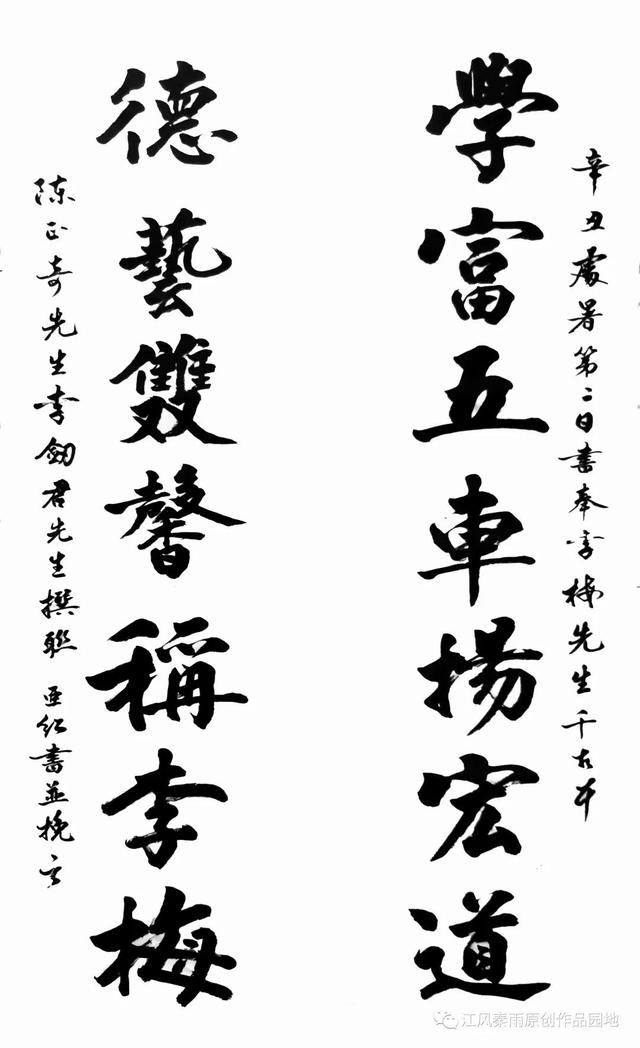 辛丑處暑第二日書奉李梅先生千古
學富五車揚宏道
德藝雙馨稱李梅
陳正奇先生李劍君先生撰聯 亚红書並挽
江风秦雨原创作品园地